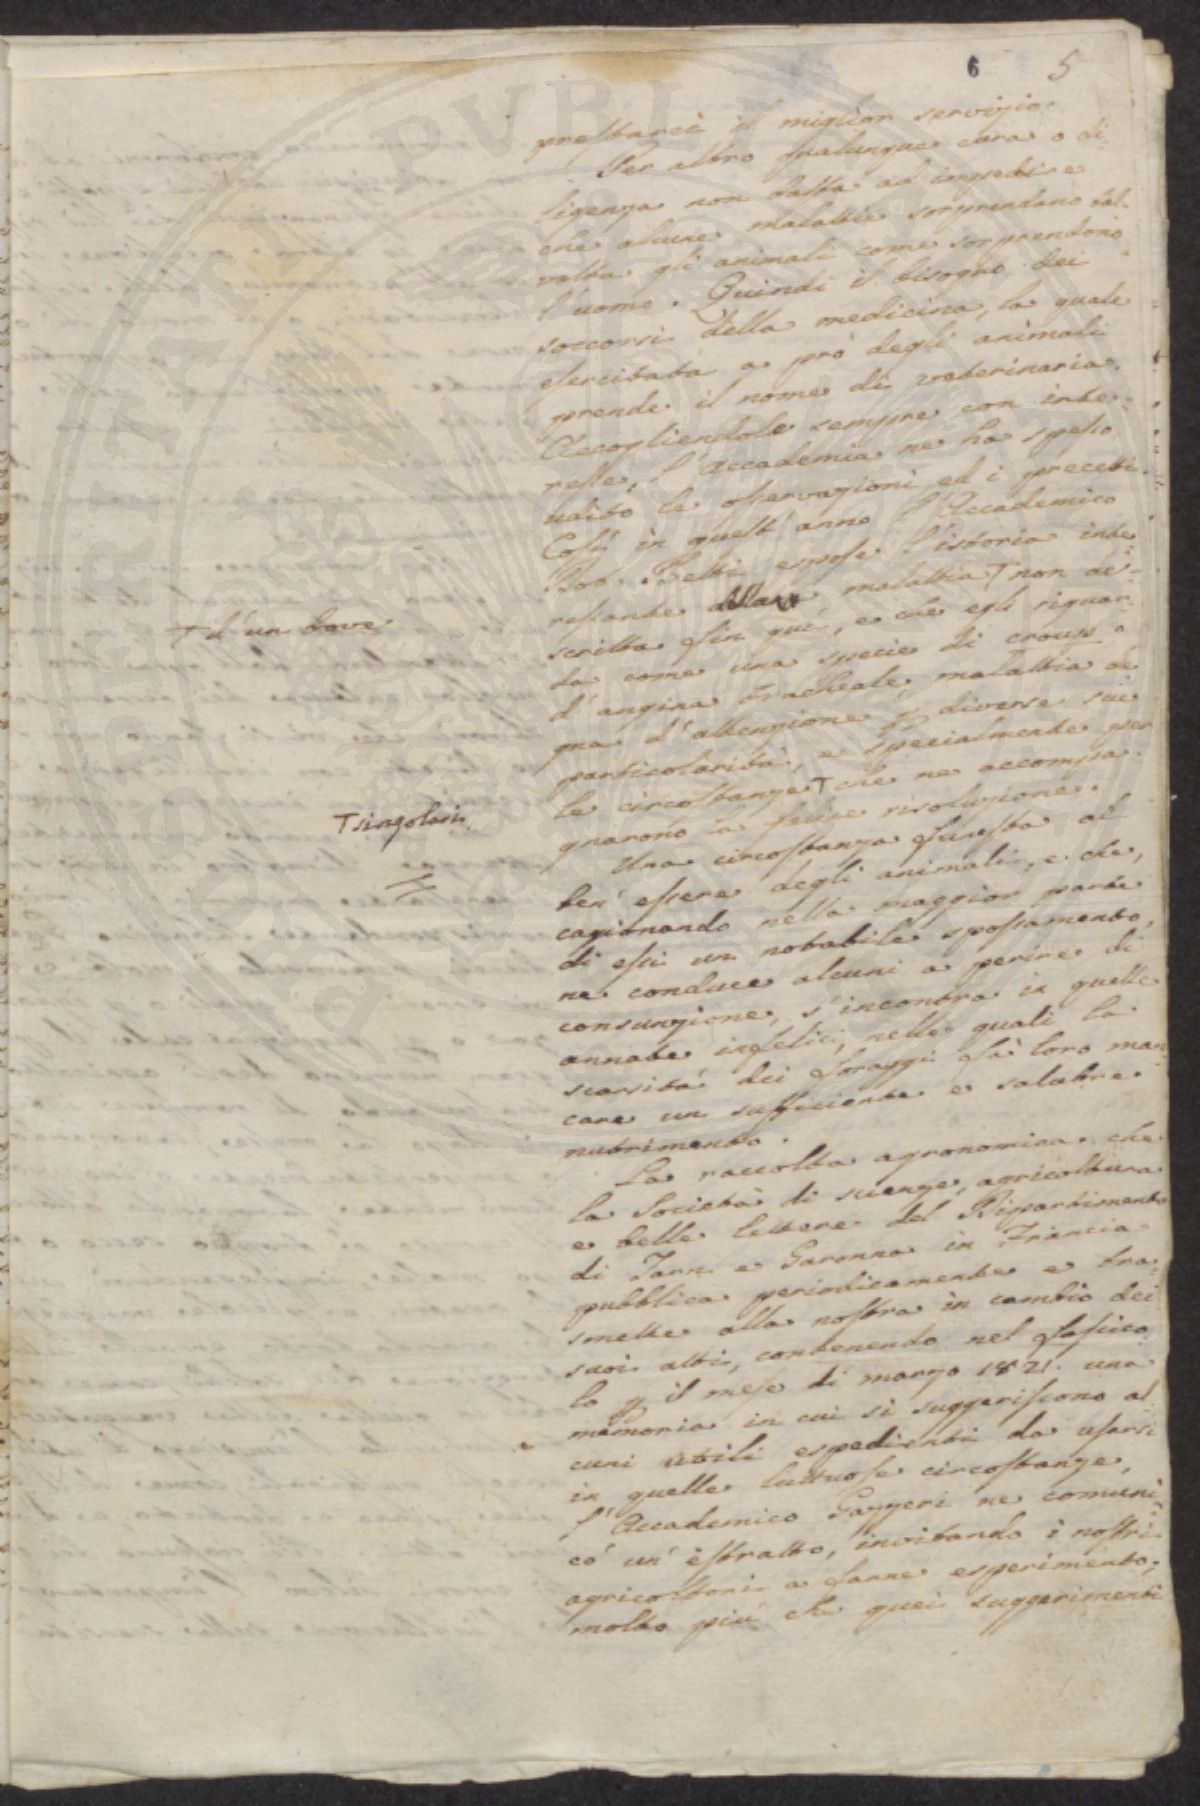 6 5
prestarci il miglior servizio.
Per altro qualunque cura o di-
ligenza non basta ad impedire
che alcune malattie sorprendano tal-
volta gli animali come sorprendono
l'uomo. Quindi il bisogno dei
soccorsi della medicina, la quale
esercitata a prò degli animali
prende il nome di veterinaria.
Accogliendole sempre con inte-
resse, l'Accademia ne ha spesso
udito le osservazioni ed i precetti.
Così in quest'anno l'Accademico
Betti espose l'istoria inte-
ressante della malattia T non de-
T d'un bove
scritta fin quì, e che egli riguar-
da come una specie di croup o
d'angina tracheale, malattia de-
gna d'attenzione p diverse sue
particolarità, e specialmente per
le circostanze T che ne accompa-
T singolari
gnarono la felice risoluzione.
Una circostanza funesta al
ben'essere degli animali, e che,
cagionando nella maggior parte
di essi un notabile spossamento,
ne conduce alcuni a perire di
consunzione, s'incontra in quelle
annate infelici, nelle quali la
scarsità dei foraggi fà loro man-
care un sufficiente e salubre
nutrimento.
La raccolta agronomica che
la Società di scienze, agricoltura
e belle lettere del Dipartimento
di Tarn e Garonna in Francia
pubblica periodicamente e tra-
smette alla nostra in cambio dei
suoi atti, contenendo nel fascico-
lo p il mese di marzo 1821. una
memoria in cui si suggeriscono al-
cuni utili espedienti da usarsi
in quelle luttuose circostanze,
l'Accademico Gazzeri ne comuni-
cò un'estratto, invitando i nostri
agricoltori a farne esperimento;
molto più che quei suggerimenti
PVBLI